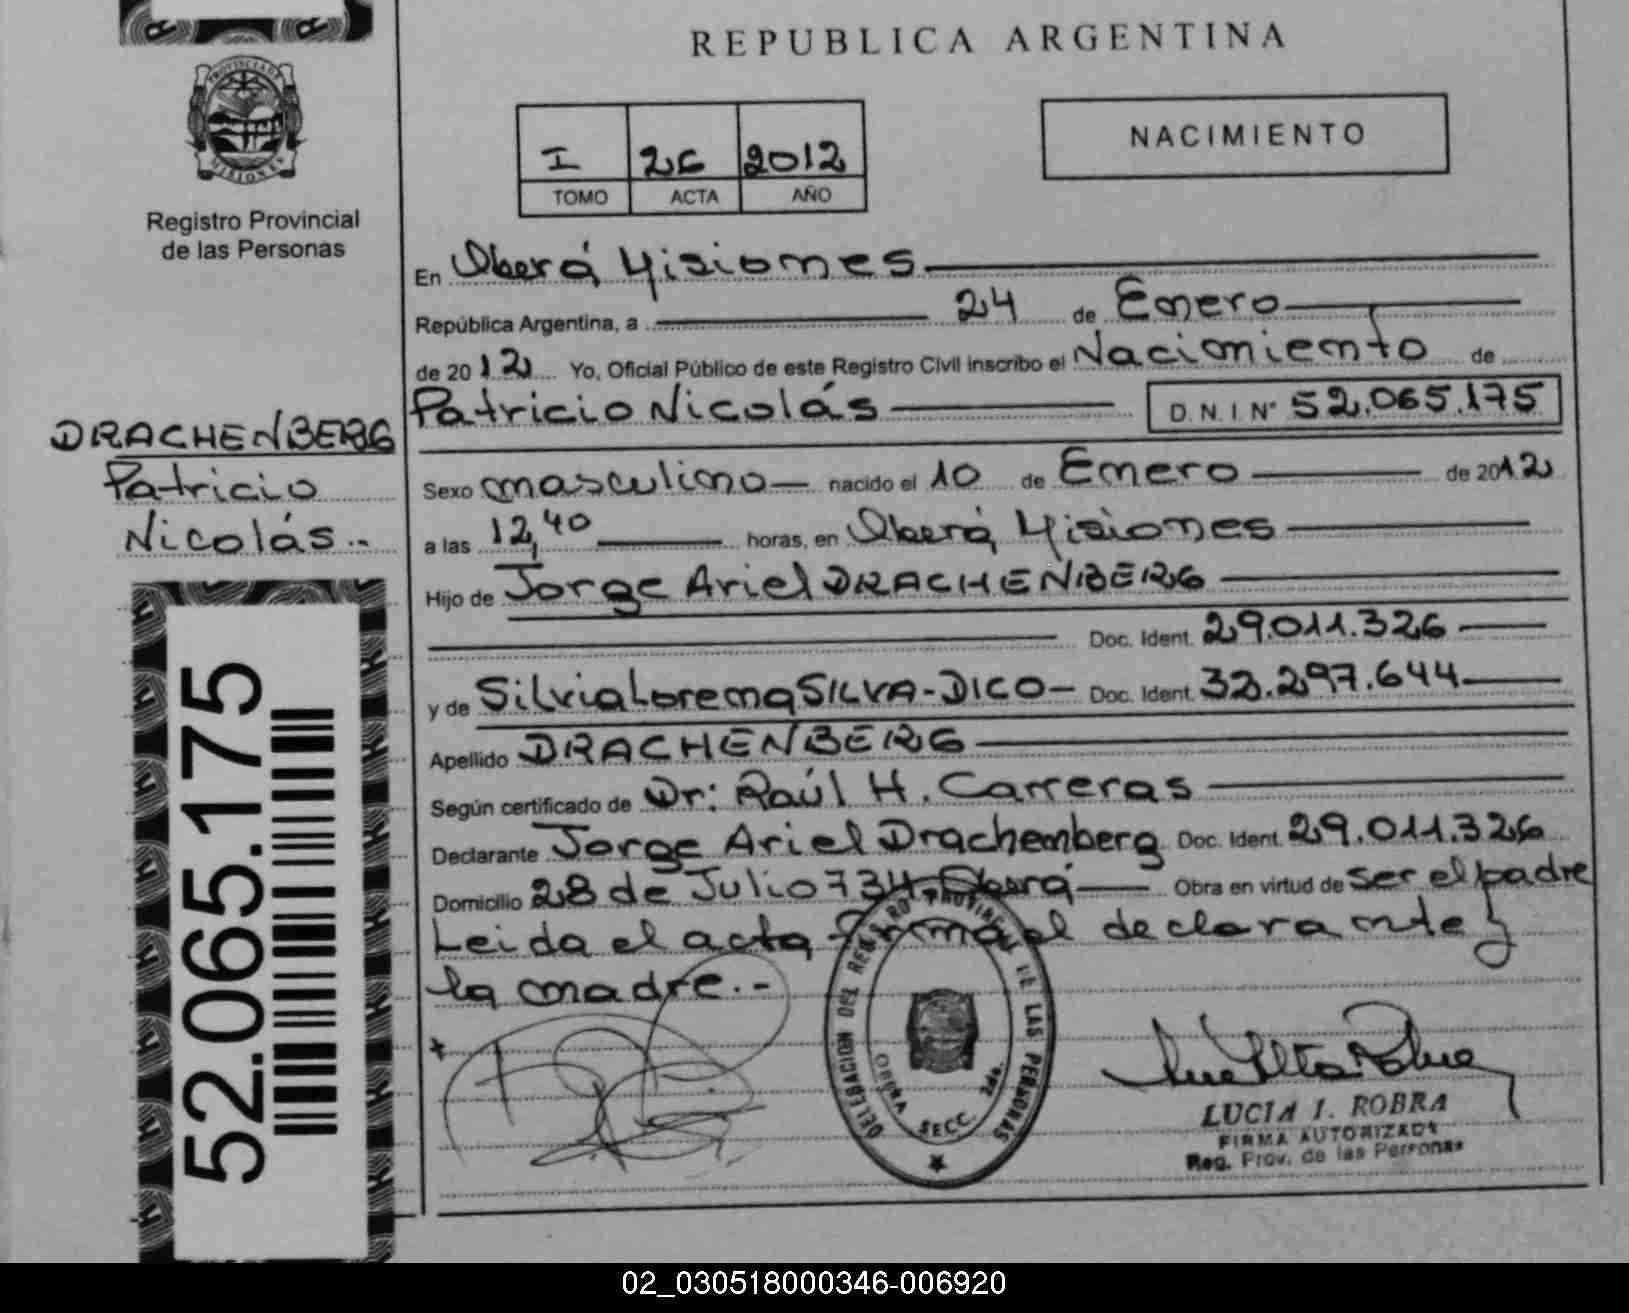 REPUBLICA ARGENTINA
PROVINCIA DE
MISIONES
Registro Provincial
de las Personas
I 26 2012
TOMO ACTA AÑO
NACIMIENTO
En Oberá, Misiones
República Argentina, a 24 de Enero
de 2012 Yo, Oficial Público de este Registro Civil inscribo el Nacimiento de
Patricio Nicolás D.N.I. N° 52.065.175
DRACHENBERG
Patricio
Nicolás..
Sexo masculino nacido el 10 de Enero de 2012
a las 12,40 horas, en Oberá, Misiones
Hijo de Jorge Ariel DRACHENBERG
Doc. Ident. 29.011.326
y de Silvia Lorena SILVA-DICO- Doc. Ident. 32.297.644
Apellido DRACHENBERG
Según certificado de Dr: Raúl H. Carreras
Declarante Jorge Ariel Drachemberg Doc. Ident. 29.011.326
Domicilio 28 de Julio 734, Oberá Obra en virtud de ser el padre
Leida el acta firma el declarante y
la madre.-
52.065.175
DELEGACION DEL REGISTRO PROVINCIAL DE LAS PERSONAS
OBERA SECC. 2da.
LUCIA I. ROBRA
FIRMA AUTORIZADA
Reg. Prov. de las Personas
02_030518000346-006920